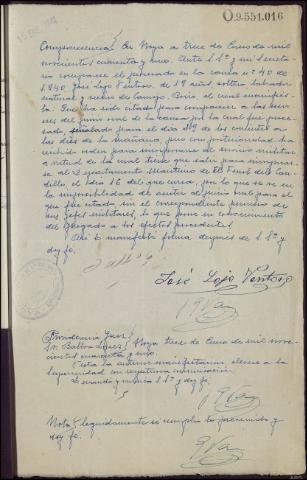 O.9.551.016
Comparecencia En Noya a trece de Enero de mil
novecientos cuarenta y uno. Ante S.Sª y mi Secreta
rio comparece el procesado en la causa nº 40 de
1.940 José Lojo Ventoso, de 19 años, soltero labrador
natural y vecino de
Que ha sido citado para comparecer a las sesio
nes del juicio oral de la causa por la cual fue proce
sado, señalado para el dia 29 de los corrientes a
las diez de la mañana, pero con posterioridad ha
recibido orden para incorporarse al servicio militar
a virtud de la cual tiene que salir para incorporar
se al Departamento Maritimo de El Ferrol del Cau
dillo, el dia 16 del que cursa, por lo que se ve en
la imposibilidad de asistir al juicio oral para el
que fue citado sin el correspondiente permiso de
sus Jefes militares, lo que pone en conocimiento
del Juzgado a los efectos procedentes.
Asi lo manifiesta firma despues de S.Sª y
doy fe.
José Lojo Ventoso
Providencia Juez
Sr. Balboa Lopez Noya trece de Enero de mil nove
cientos cuarenta y uno.
Con la anterior manifestacion elevese a la
Superioridad con respetuosa comunicacion.
Lo mando y rubrica S.Sª y doy fe.
Nota Seguidamente se cumple lo prevenido y
doy fe.